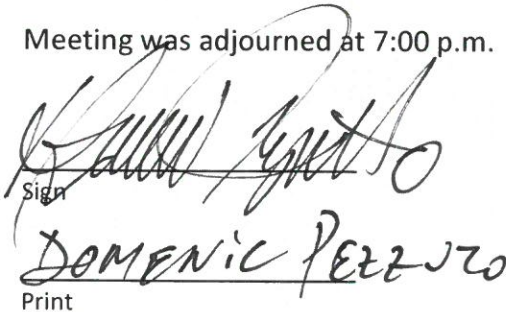 Meeting was adjourned at 7:00 p.m.
Sign
DOMENIC PEZZUZO
Print